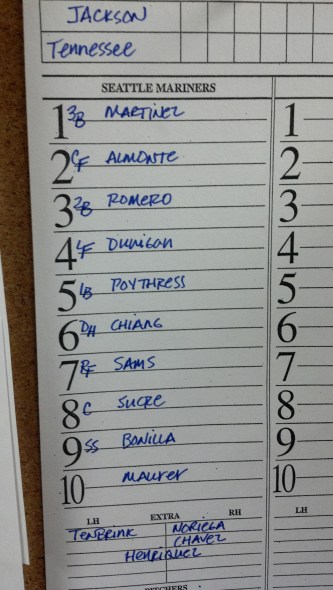 JACKSON
Tennessee
SEATTLE MARINERS
1 3B MARTINEZ 1
2 CF ALMONTE 2
3 2B ROMERO 3
4 LF DUNIGAN 4
5 1B POYTHRESS 5
6 DH CHIANG 6
7 RF SAMS 7
8 C SUCRE 8
9 SS BONILLA 9
10 MAURER 10
LH EXTRA RH LH
TENBRINK NORIEGA
CHAVEZ
HENRIQUEZ
PITCHERS